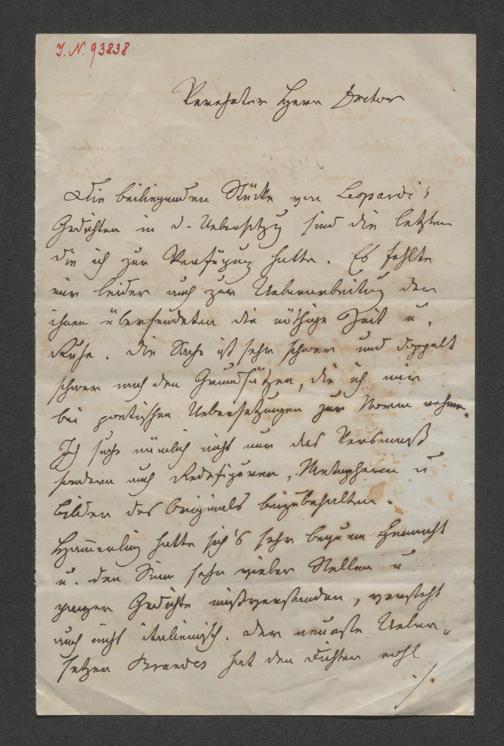 J. N. 93838
Verehrter Herr Doctor
Die beiliegenden Stücke von Leopardi's
Gedichten in d. Uebersetzg sind die letzten
die ich zur Verfügung hatte. Es fehlte
mir leider auch zur Ueberarbeitung der
Ihnen übersendeten die nöthige Zeit u.
Ruhe. Die Sache ist sehr schwer und doppelt
schwer nach den Grundsätzen, die ich mir
bei poetischen Uebersetzungen zur Norm nehme.
Ich suche nämlich nicht nur das Versmaß
sondern auch Redefiguren, Metaphern u
Bilder des Originals beizubehalten.
Hamerling hatte sich's sehr bequem gemacht
u. den Sinn sehr vieler Stellen u
ganzer Gedichte mißverstanden, versteht
auch nicht italienisch. Der neueste Ueber-
setzer Brandes hat den Dichter wohl
./.